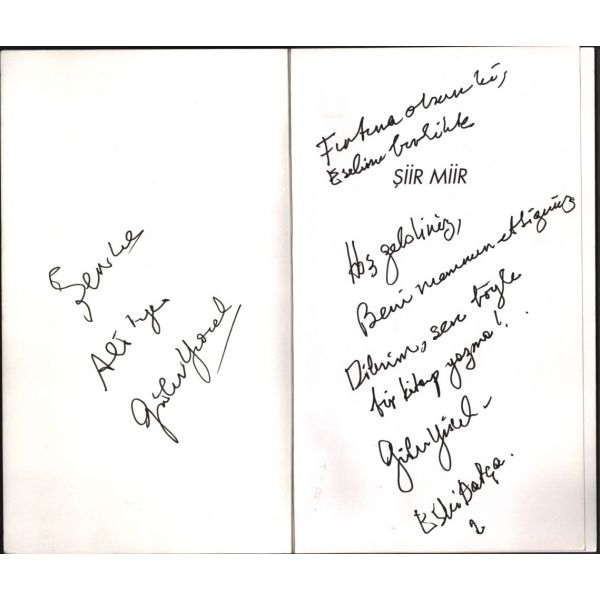 Şenize
Ali
Güler Yücel
Fırtına olsun ki,
Eselim birlikte
ŞİİR MİİR
Hoş geldiniz,
Beni memnun ettiğiniz
Dilerim, sen böyle
bir kitap yazma!..
Güler Yücel
Eski Datça.
2